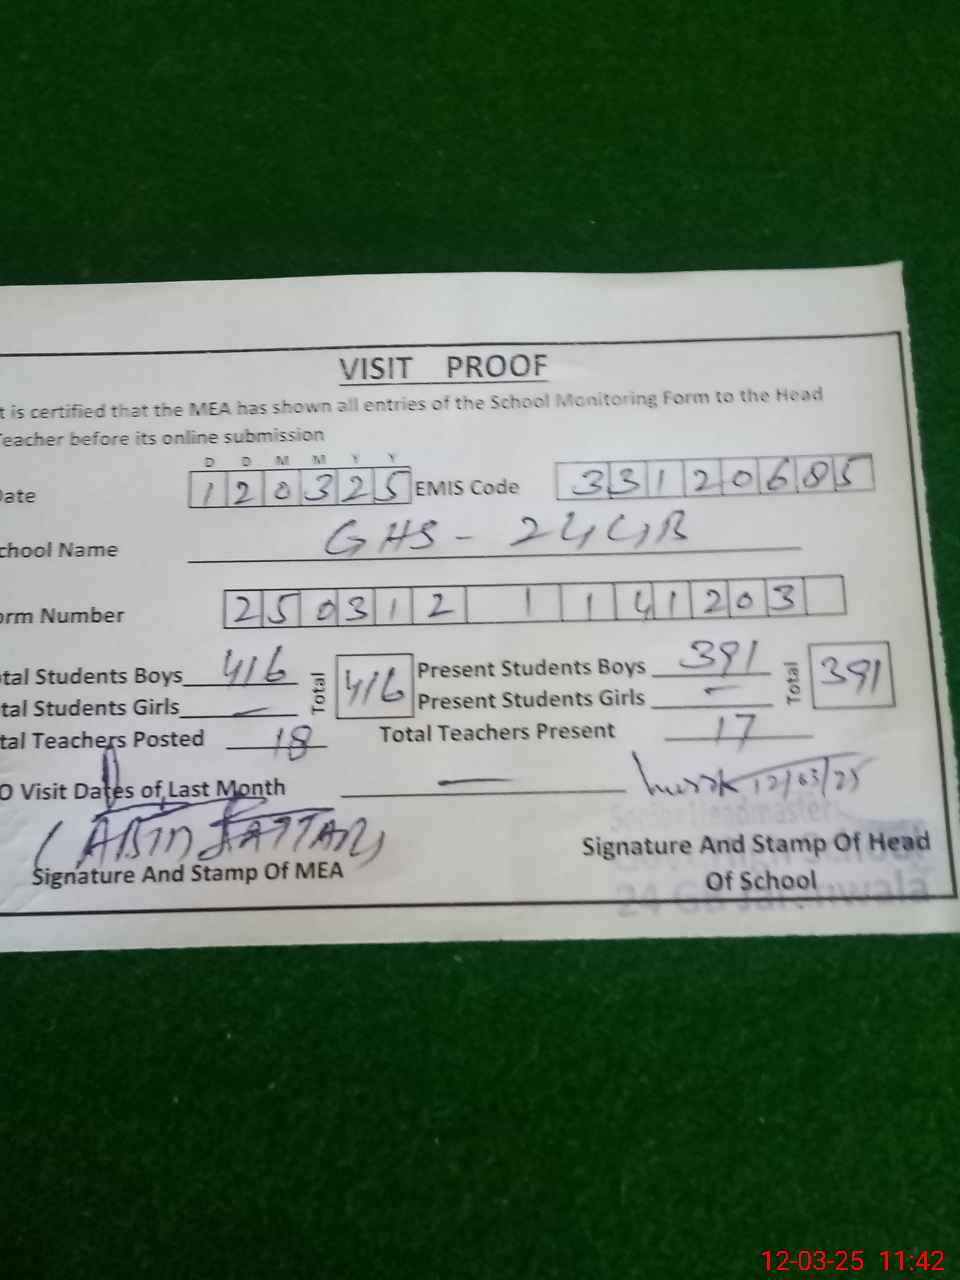 VISIT PROOF
t is certified that the MEA has shown all entries of the School Monitoring Form to the Head
eacher before its online submission
D D M M Y Y
ate 120325 EMIS Code 33120685
chool Name GHS - 24GB
orm Number 250312 1 141203
tal Students Boys 416 Total 416 Present Students Boys 391 Total 391
tal Students Girls — Present Students Girls —
tal Teachers Posted 18 Total Teachers Present 17
O Visit Dates of Last Month — 12/03/25
(ABID SATTAR) Senior Headmaster
Signature And Stamp Of MEA Signature And Stamp Of Head
Of School
24 GB Jaranwala
12-03-25 11:42